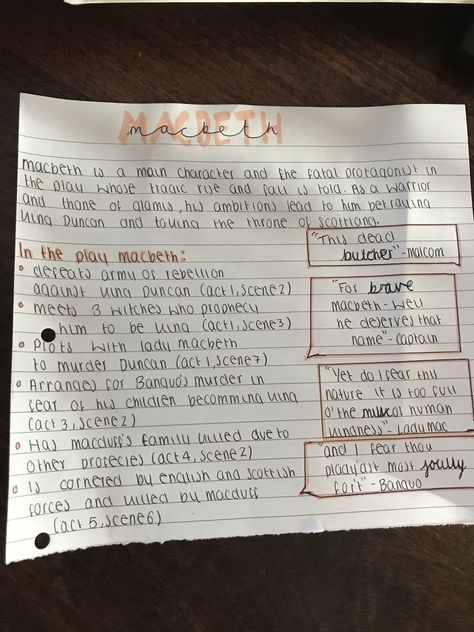 MACBETH
macbeth
macbeth is a main character and the fatal protagonist in
the play whose tragic rise and fall is told. As a warrior
and thane of glamis, his ambitions lead to him betraying
king Duncan and taking the throne of scottland.
In the play macbeth:
• defeats army of rebellion
against king Duncan (act 1, scene 2)
• meets 3 witches who prophecy
him to be king (act 1, scene 3)
• Plots with lady macbeth
to murder Duncan (act 1, scene 7)
• Arranges for Banquo's murder in
fear of his children becomming king
(act 3, scene 2)
• Has macduff's family killed due to
other profecies (act 4, scene 2)
• Is cornered by english and scottish
forces and killed by macduff
(act 5, scene 6)
"This dead
butcher" - malcom
"For brave
macbeth - well
he deserves that
name" - captain
"Yet do I fear thy
nature it is too full
o' the milk of human
kindness" - Lady mac
"and I fear thou
play'dst most foully
for't" - Banquo